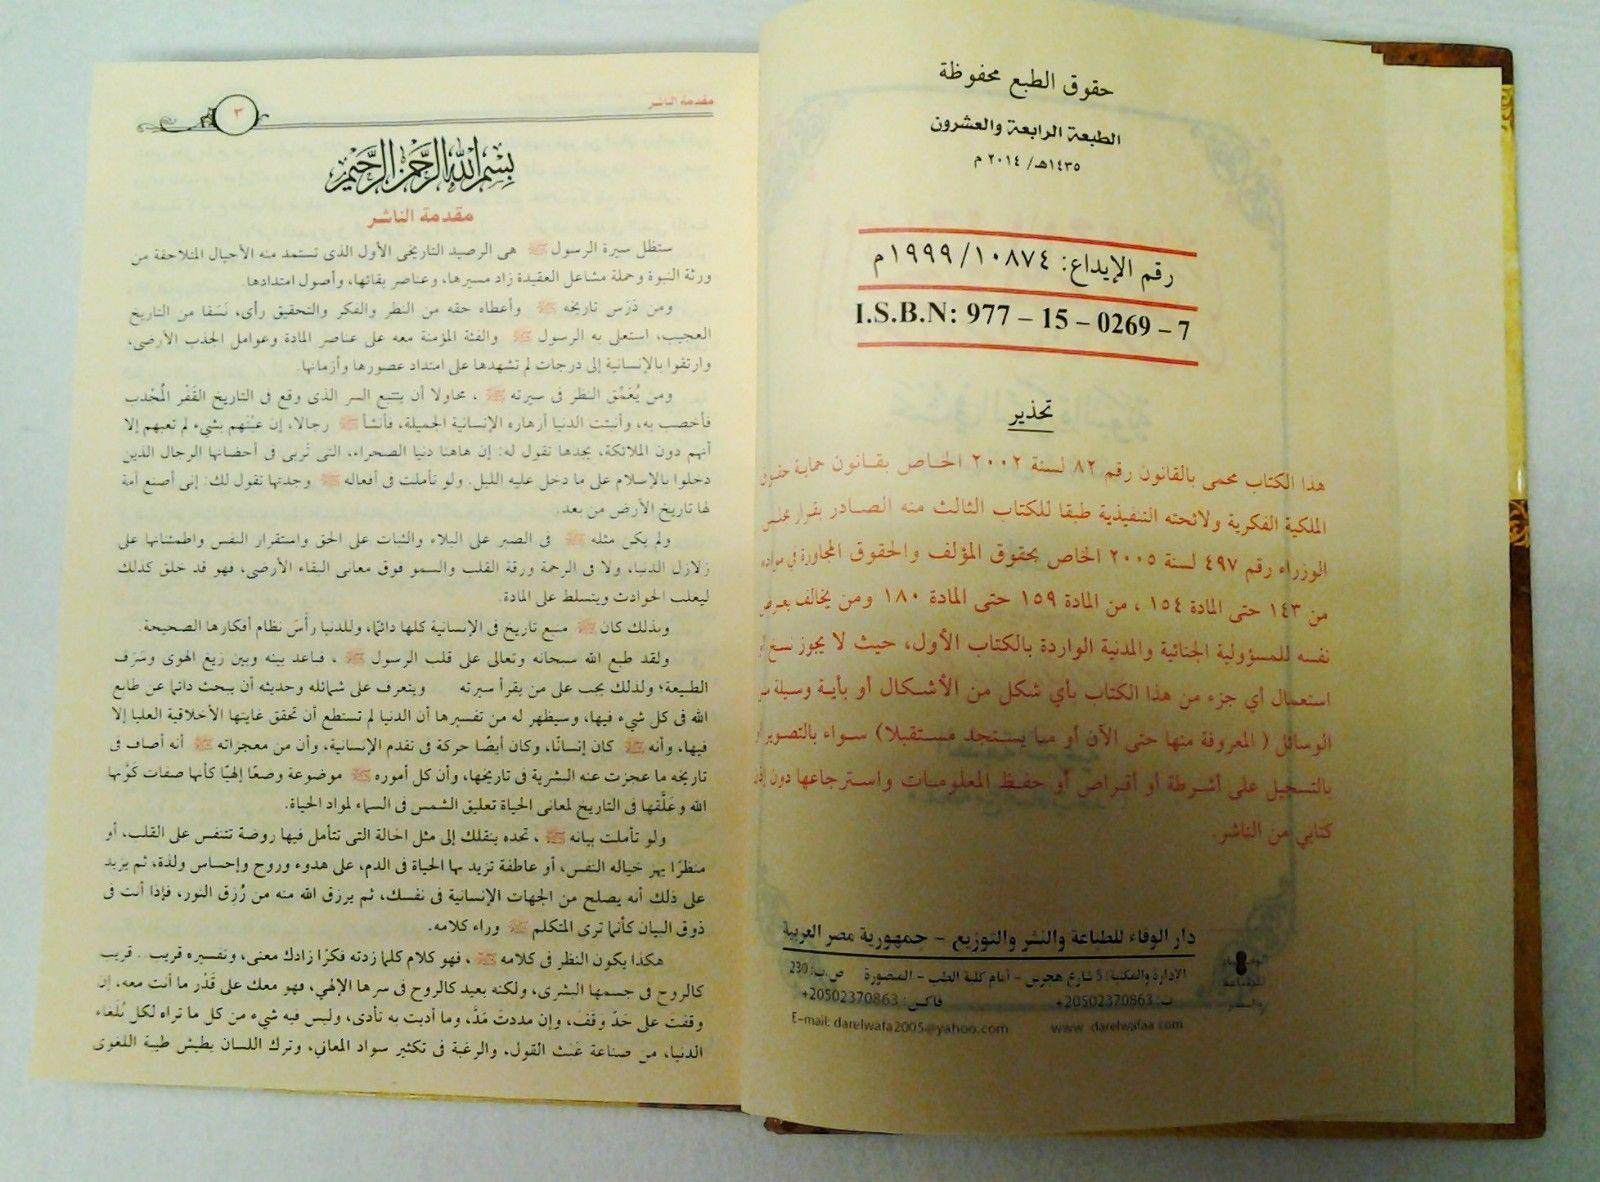 حقوق الطبع محفوظة
الطبعة الرابعة والعشرون
١٤٣٥هـ/ ٢٠١٤ م
رقم الإيداع: ١٠٨٧٤ /١٩٩٩م
I.S.B.N: 977 – 15 – 0269 – 7
تحذير
هذا الكتاب محمى بالقانون رقم ٨٢ لسنة ٢٠٠٢ الخاص بقانون حماية حقوق
الملكية الفكرية ولائحته التنفيذية طبقا للكتاب الثالث منه الصادر بقرار مجلس
الوزراء رقم ٤٩٧ لسنة ٢٠٠٥ الخاص بحقوق المؤلف والحقوق المجاورة في مواده
من ١٤٣ حتى المادة ١٥٤ ، من المادة ١٥٩ حتى المادة ١٨٠ ومن يخالف يعرض
نفسه للمسؤولية الجنائية والمدنية الواردة بالكتاب الأول، حيث لا يجوز نسخ
استعمال أي جزء من هذا الكتاب بأي شكل من الأشكال أو بأية وسيلة
الوسائل ( المعروفة منها حتى الآن أو ما يستجد مستقبلا) سواء بالتصوير
بالتسجيل على أشرطة أو أقراص أو حفظ المعلومات واسترجاعها دون
كتابي من الناشر.
دار الوفاء للطباعة والنشر والتوزيع – جمهورية مصر العربية
الإدارة والمكتبة: 5 شارع هجرس – أمام كلية الطب – المنصورة ص.ب: 230
ت: 20502370863+ فاكس: 20502370863+
E-mail: darelwafa2005@yahoo.com www. darelwafaa.com
مقدمة الناشر
٣
بسم الله الرحمن الرحيم
مقدمة الناشر
ستظل سيرة الرسول ﷺ هى الرصيد التاريخى الأول الذى تستمد منه الأجيال المتلاحقة من
ورثة النبوة وحملة مشاعل العقيدة زاد مسيرها، وعناصر بقائها، وأصول امتدادها.
ومن دَرَس تاريخه ﷺ وأعطاه حقه من النظر والفكر والتحقيق رأى، نَسَقا من التاريخ
العجيب، استعلى به الرسول ﷺ والفئة المؤمنة معه على عناصر المادة وعوامل الجذب الأرضى،
وارتقوا بالإنسانية إلى درجات لم تشهدها على امتداد عصورها وأزمانها.
ومن يُعَمِّق النظر فى سيرته ﷺ ، محاولا أن يتتبع السر الذى وقع فى التاريخ القَفْر المُجْدب
فأخصب به، وأنبتت الدنيا أزهاره الإنسانية الجميلة، فأنشأ ﷺ رجالا، إن عبْتَهم بشىء لم تعبهم إلا
أنهم دون الملائكة، يجدها تقول له: إن هاهنا دنيا الصحراء، التى تَربى فى أحضانها الرجال الذين
دخلوا بالإسلام على ما دخل عليه الليل. ولو تأملت فى أفعاله ﷺ وجدتها تقول لك: إنى أصنع أمة
لها تاريخ الأرض من بعد.
ولم يكن مثله ﷺ فى الصبر على البلاء والثبات على الحق واستقرار النفس واطمئنانها على
زلازل الدنيا، ولا فى الرحمة ورقة القلب والسمو فوق معانى البقاء الأرضى، فهو قد خلق كذلك
ليغلب الحوادث ويتسلط على المادة.
وبذلك كان ﷺ منبع تاريخ فى الإنسانية كلها دائمًا، وللدنيا رأسَ نظام أفكارها الصحيحة.
ولقد طبع الله سبحانه وتعالى على قلب الرسول ﷺ ، فباعد بينه وبين زيغ الهوى وسَرَف
الطبيعة؛ ولذلك يجب على من يقرأ سيرته ويتعرف على شمائله وحديثه أن يبحث دائما عن طابع
الله فى كل شىء فيها، وسيظهر له من تفسيرها أن الدنيا لم تستطع أن تحقق غايتها الأخلاقية العليا إلا
فيها، وأنه ﷺ كان إنسانًا، وكان أيضًا حركة فى تقدم الإنسانية، وأن من معجزاته ﷺ أنه أضاف فى
تاريخه ما عجزت عنه البشرية فى تاريخها، وأن كل أموره ﷺ موضوعة وضعًا إلهيًا كأنها صفات كَوَّنها
الله وعَلَّقها فى التاريخ لمعانى الحياة تعليق الشمس فى السماء لمواد الحياة.
ولو تأملت بيانه ﷺ ، تجده ينقلك إلى مثل الحالة التى تتأمل فيها روضة تتنفس على القلب، أو
منظرًا يهز خياله النفس، أو عاطفة تزيد بها الحياة فى الدم، على هدوء وروح وإحساس ولذة، ثم يزيد
على ذلك أنه يصلح من الجهات الإنسانية فى نفسك، ثم يرزق الله منه من رُزِق النور، فإذا أنت فى
ذوق البيان كأنما ترى المتكلم ﷺ وراء كلامه.
هكذا يكون النظر فى كلامه ﷺ ، فهو كلام كلما زدته فكرًا زادك معنى، وتفسيره قريب.. قريب
كالروح فى جسمها البشرى، ولكنه بعيد كالروح فى سرها الإلهي، فهو معك على قَدْر ما أنت معه، إن
وقفتَ على حَدٍّ وَقَفَ، وإن مددتَ مَدَّ، وما أديت به تأدى، وليس فيه شىء من كل ما تراه لكل بُلغاء
الدنيا، من صناعة عَبَث القول، والرغبة فى تكثير سواد المعاني، وترك اللسان يطيش طيشه اللغوى